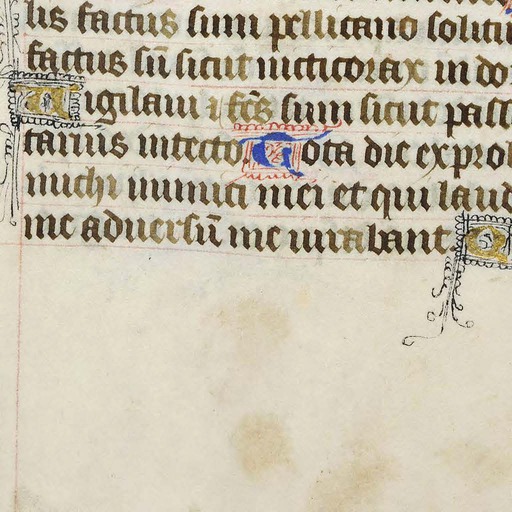 lis factus sum pellicano solitu
factus sū sicut nicticorax in do
Uigilaui ⁊ fcs̄ sum sicut pass
rarius in tecto Tota die exprob
michi inimici mei et qui laud
me aduersū me iurabant Q